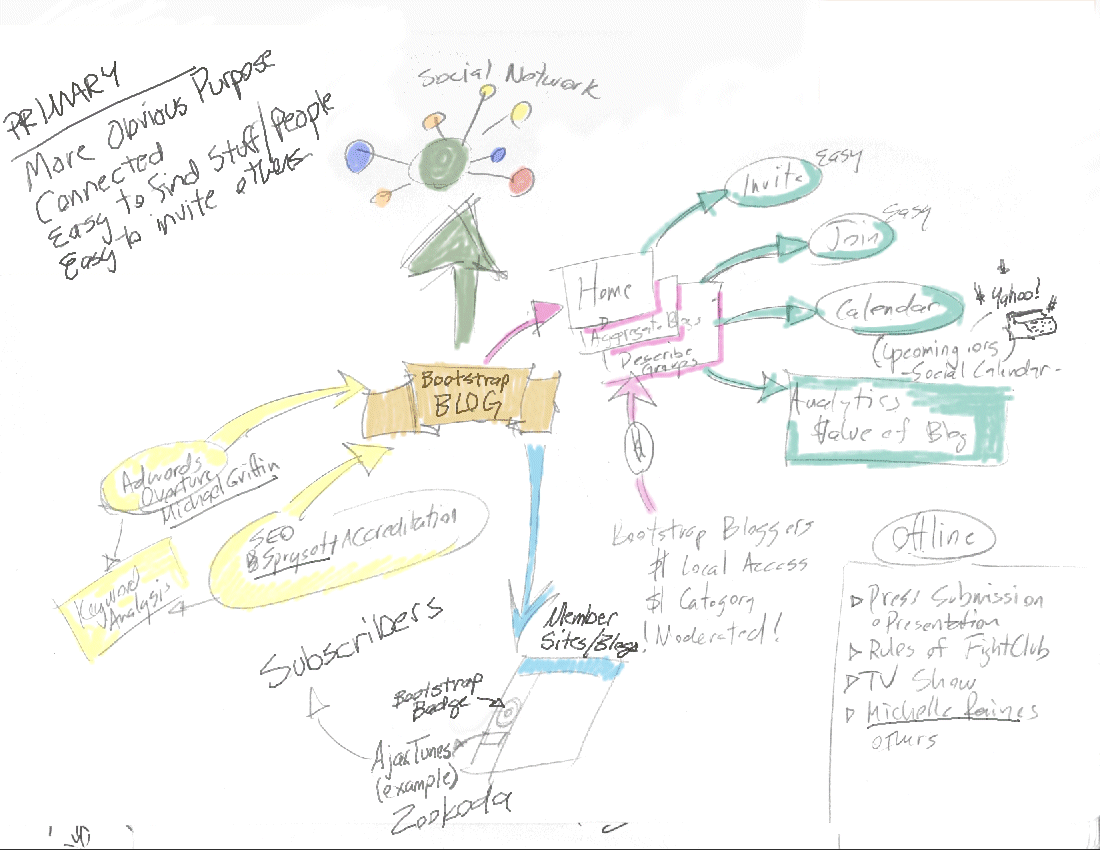 PRIMARY
More Obvious Purpose
Connected
Easy to find stuff/People
Easy to invite others
Social Network
Invite
Easy
Join
Easy
Home
Aggregate Blogs
Describe
Groups
Calendar
Yahoo!
(Upcoming.org)
-Social Calendar-
Analytics
Value of Blog
Bootstrap
BLOG
Adwords
Overture
Michael Griffin
SEO
Accreditation
Keyword
Analysis
Subscribers
Bootstrap Bloggers
$ Local Access
$ Category
! Moderated!
Member
Sites/Blogs
Bootstrap
Badge
AjaxTunes
(example)
Zookoda
Offline
Press Submission
Presentation
Rules of FightClub
TV Show
Michelle Raines
others